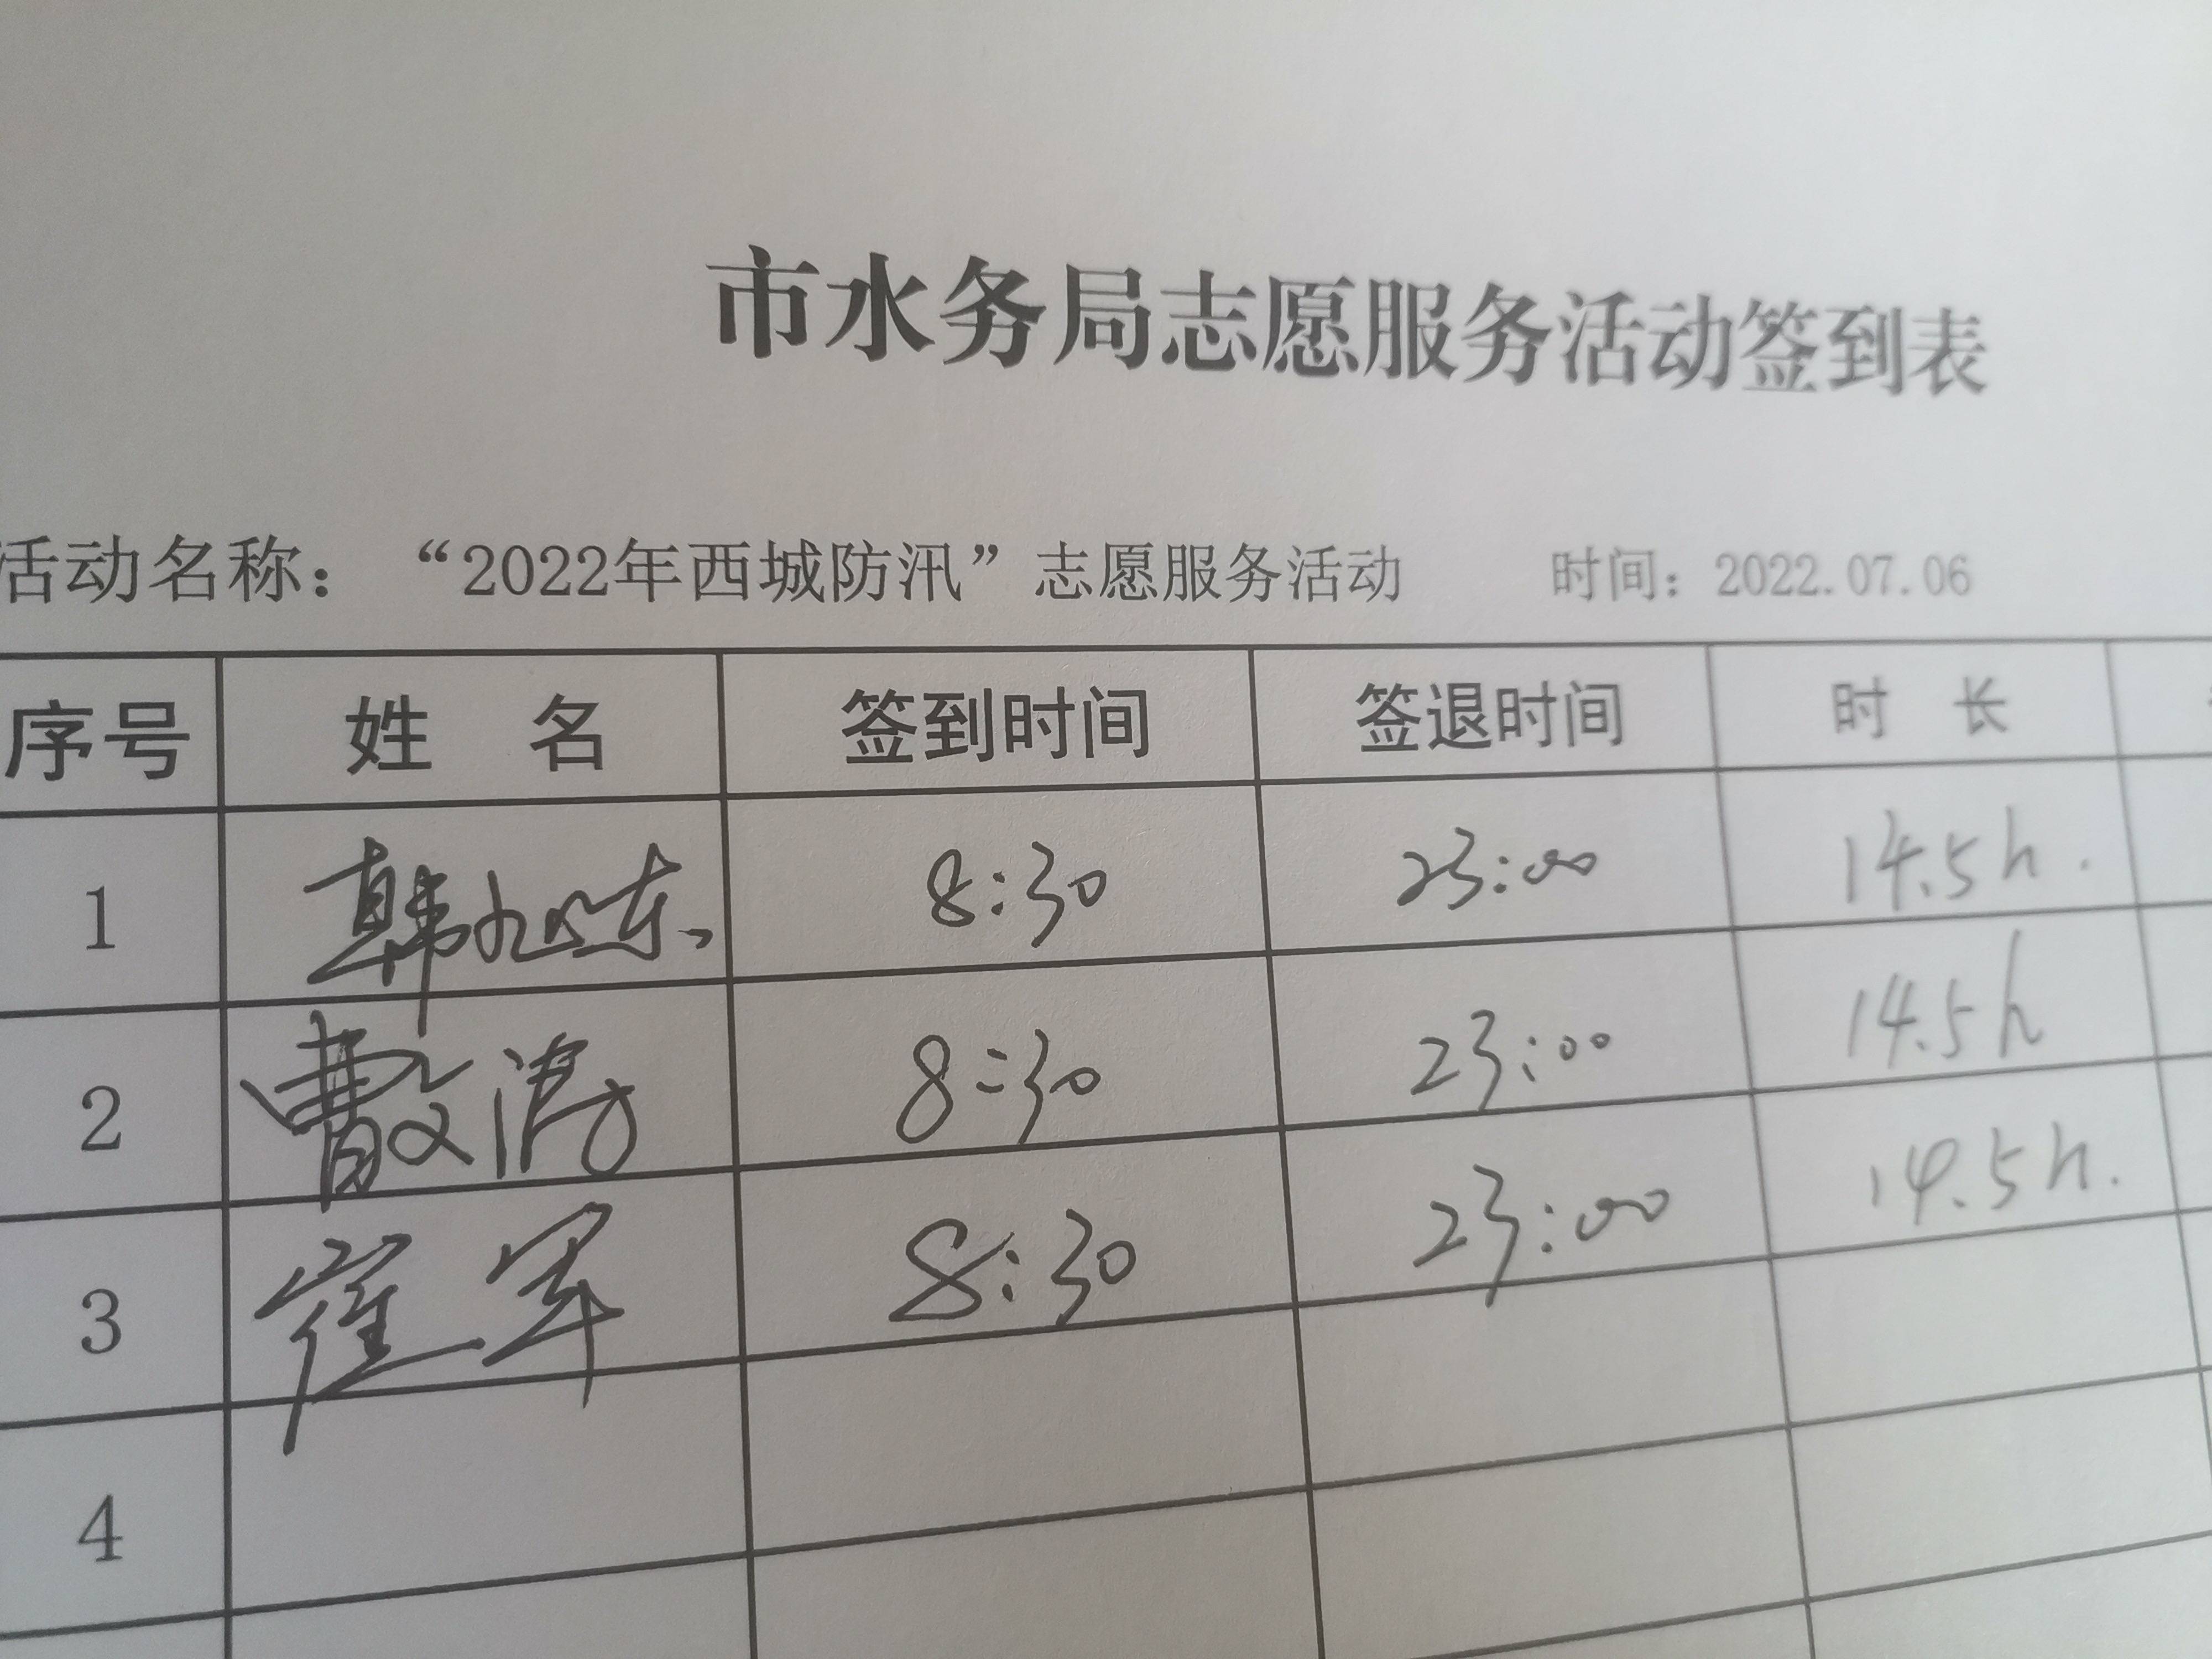 市水务局志愿服务活动签到表
活动名称：“2022年西城防汛”志愿服务活动 时间：2022.07.06
序号 姓名 签到时间 签退时间 时长
1 韩旭东 8:30 23:00 14.5h.
2 8:30 23:00 14.5h
3 崔军 8:30 23:00 14.5h.
4